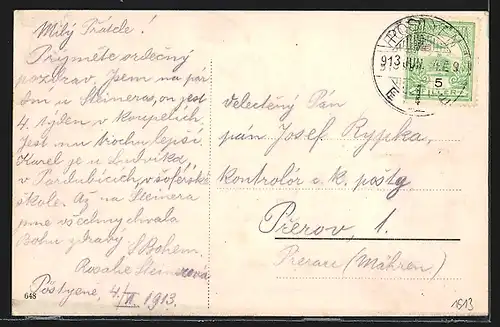 Milý Přátele!
Přijměte srdečný
pozdrav. Jsem na pár
dní u Steinera, on jest
4. týden v koupelích.
Jest mu trochu lepší.
Karel je u Ludvíka
v Pardubicích, v šoférské
škole. Až na Steinera
jsme všechny chvala
Bohu zdravy
S Bohem.
Rosalie Steinerová
Pöstyené, 4./VI. 1913.
648
velectěný Pán
pán Josef Rypka,
kontrolór c. k. pošty
Přerov, 1.
Prerau (Mähren)
1913
913 JUN.
5
FILLÉR